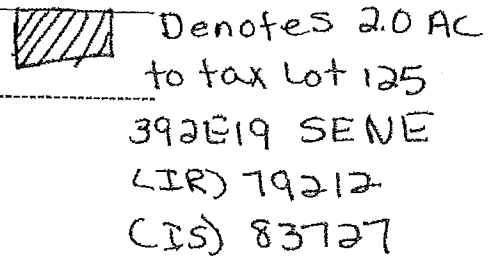 Denotes 2.0 AC
to tax Lot 125
392E19 SENE
(IR) 79212
(IS) 83727